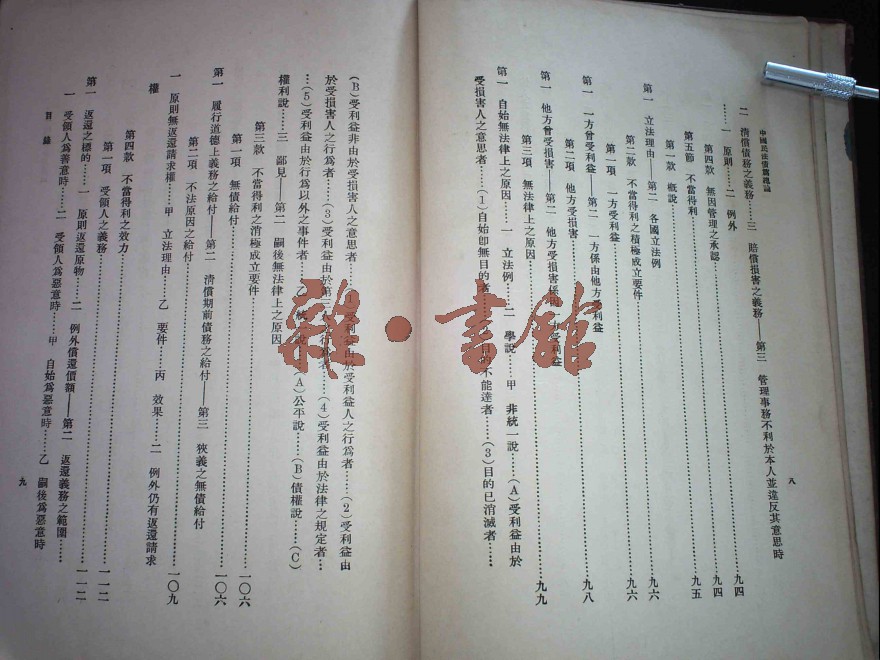 中國民法債篇總論
八
二 清償債務之義務……三 賠償損害之義務——第三 管理事務不利於本人並違反其意思時
……一 原則……二 例外……九四
第四款 無因管理之承認……九四
第五節 不當得利……九五
第一款 概說
第一 立法理由——第二 各國立法例……九六
第二款 不當得利之積極成立要件……九六
第一項 一方受利益
第一 一方曾受利益——第二 一方係由他方受利益……九八
第二項 他方受損害
第一 他方曾受損害——第二 他方受損害係因一方受利益
第三項 無法律上之原因……九九
第一 自始無法律上之原因……一 立法例……二 學說……甲 非統一說……(A)受利益由於
受損害人之意思者……(1)自始即無目的者……目的不能達者……(3)目的已消滅者……
(B)受利益非由於受損害人之意思者……(1)受利益由於受利益人之行爲者……(2)受利益由
於受損害人之行爲者……(3)受利益由於第三人行爲者……(4)受利益由於法律之規定者…
…(5)受利益由於行爲以外之事件者……乙 統一說……(A)公平說……(B)債權說……(C)
權利說……三 鄙見——第二 嗣後無法律上之原因
第三款 不當得利之消極成立要件……一〇六
第一項 無債給付……一〇六
第一 履行道德上義務之給付——第二 清償期前債務之給付——第三 狹義之無債給付
第二項 不法原因之給付……一〇九
一 原則無返還請求權……甲 立法理由……乙 要件……丙 效果……二 例外仍有返還請求
權
第四款 不當得利之效力……一一二
第一項 受領人之義務……一一二
第一 返還之標的……一 原則返還原物……二 例外償還價額——第二 返還義務之範圍……
一 受領人爲善意時……二 受領人爲惡意時……甲 自始爲惡意時……乙 嗣後爲惡意時
目錄
九